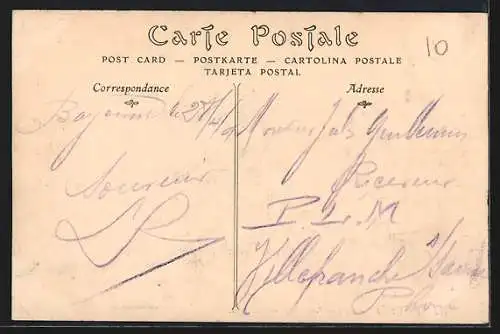 Carte Postale
10
POST CARD — POSTKARTE — CARTOLINA POSTALE
TARJETA POSTAL
Correspondance
Adresse
Bayonne le 27/
Souvenir
LR
Monsieur
Receveur
P. L. M
Villefranche
Rhône